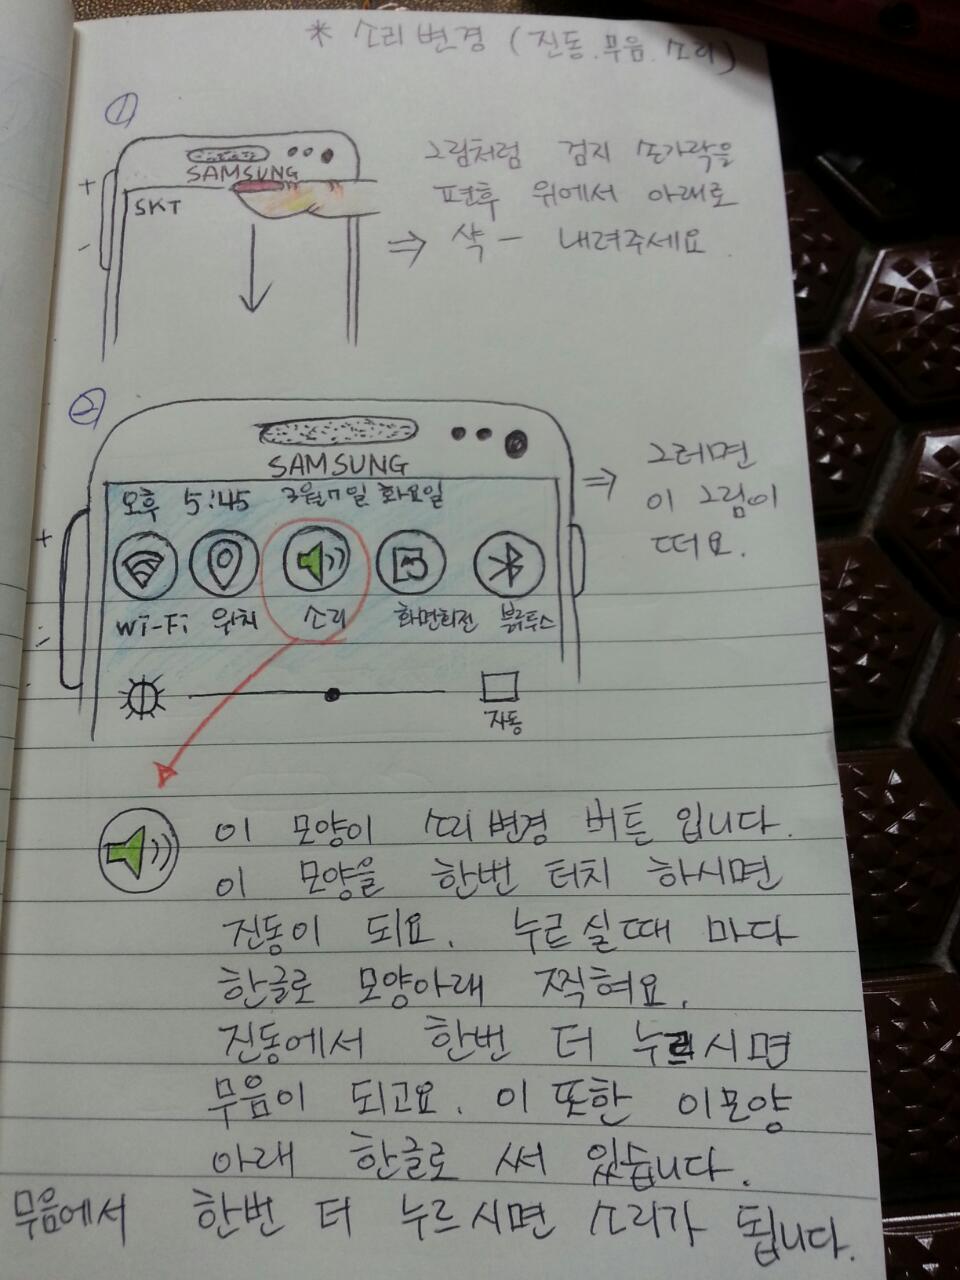 * 소리변경 (진동.무음.소리)
①
SAMSUNG
SKT
+
-
그림처럼 검지 손가락을
편후 위에서 아래로
⇒ 샥 — 내려주세요.
②
SAMSUNG
오후 5:45 3월 7일 화요일
+
-
Wi-Fi 위치 소리 화면회전 블루투스
자동
⇒ 그러면
이 그림이
떠요.
이 모양이 소리변경 버튼 입니다.
이 모양을 한번 터치 하시면
진동이 되요. 누르실때 마다
한글로 모양아래 찍혀요.
진동에서 한번 더 누르시면
무음이 되고요. 이 또한 이모양
아래 한글로 써 있습니다.
무음에서 한번 더 누르시면 소리가 됩니다.